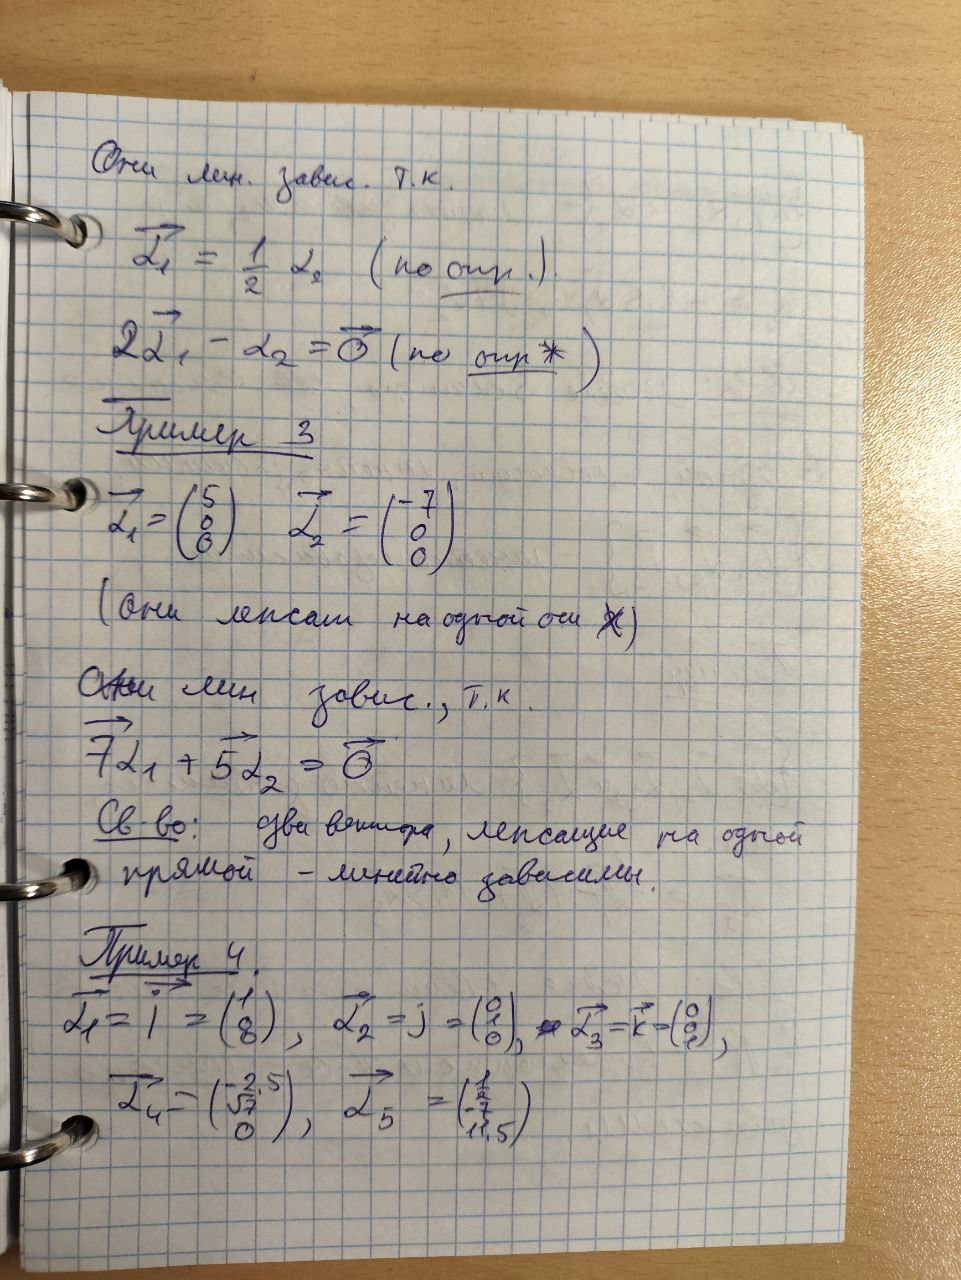 Они лин. завис. т.к.
α₁ = 1/2 α₂ (по опр.).
2α₁ - α₂ = 0 (по опр*)
Пример 3
α₁ = (5 0 0) α₂ = (-7 0 0)
(они лежат на одной оси X)
Они лин завис., т.к.
7α₁ + 5α₂ = 0
Св-во: два вектора, лежащие на одной
прямой - линейно зависимы.
Пример 4.
α₁ = i = (1 0 0), α₂ = j = (0 1 0), α₃ = k = (0 0 1),
α₄ = (-2,5 0), α₅ = (-7 11,5)